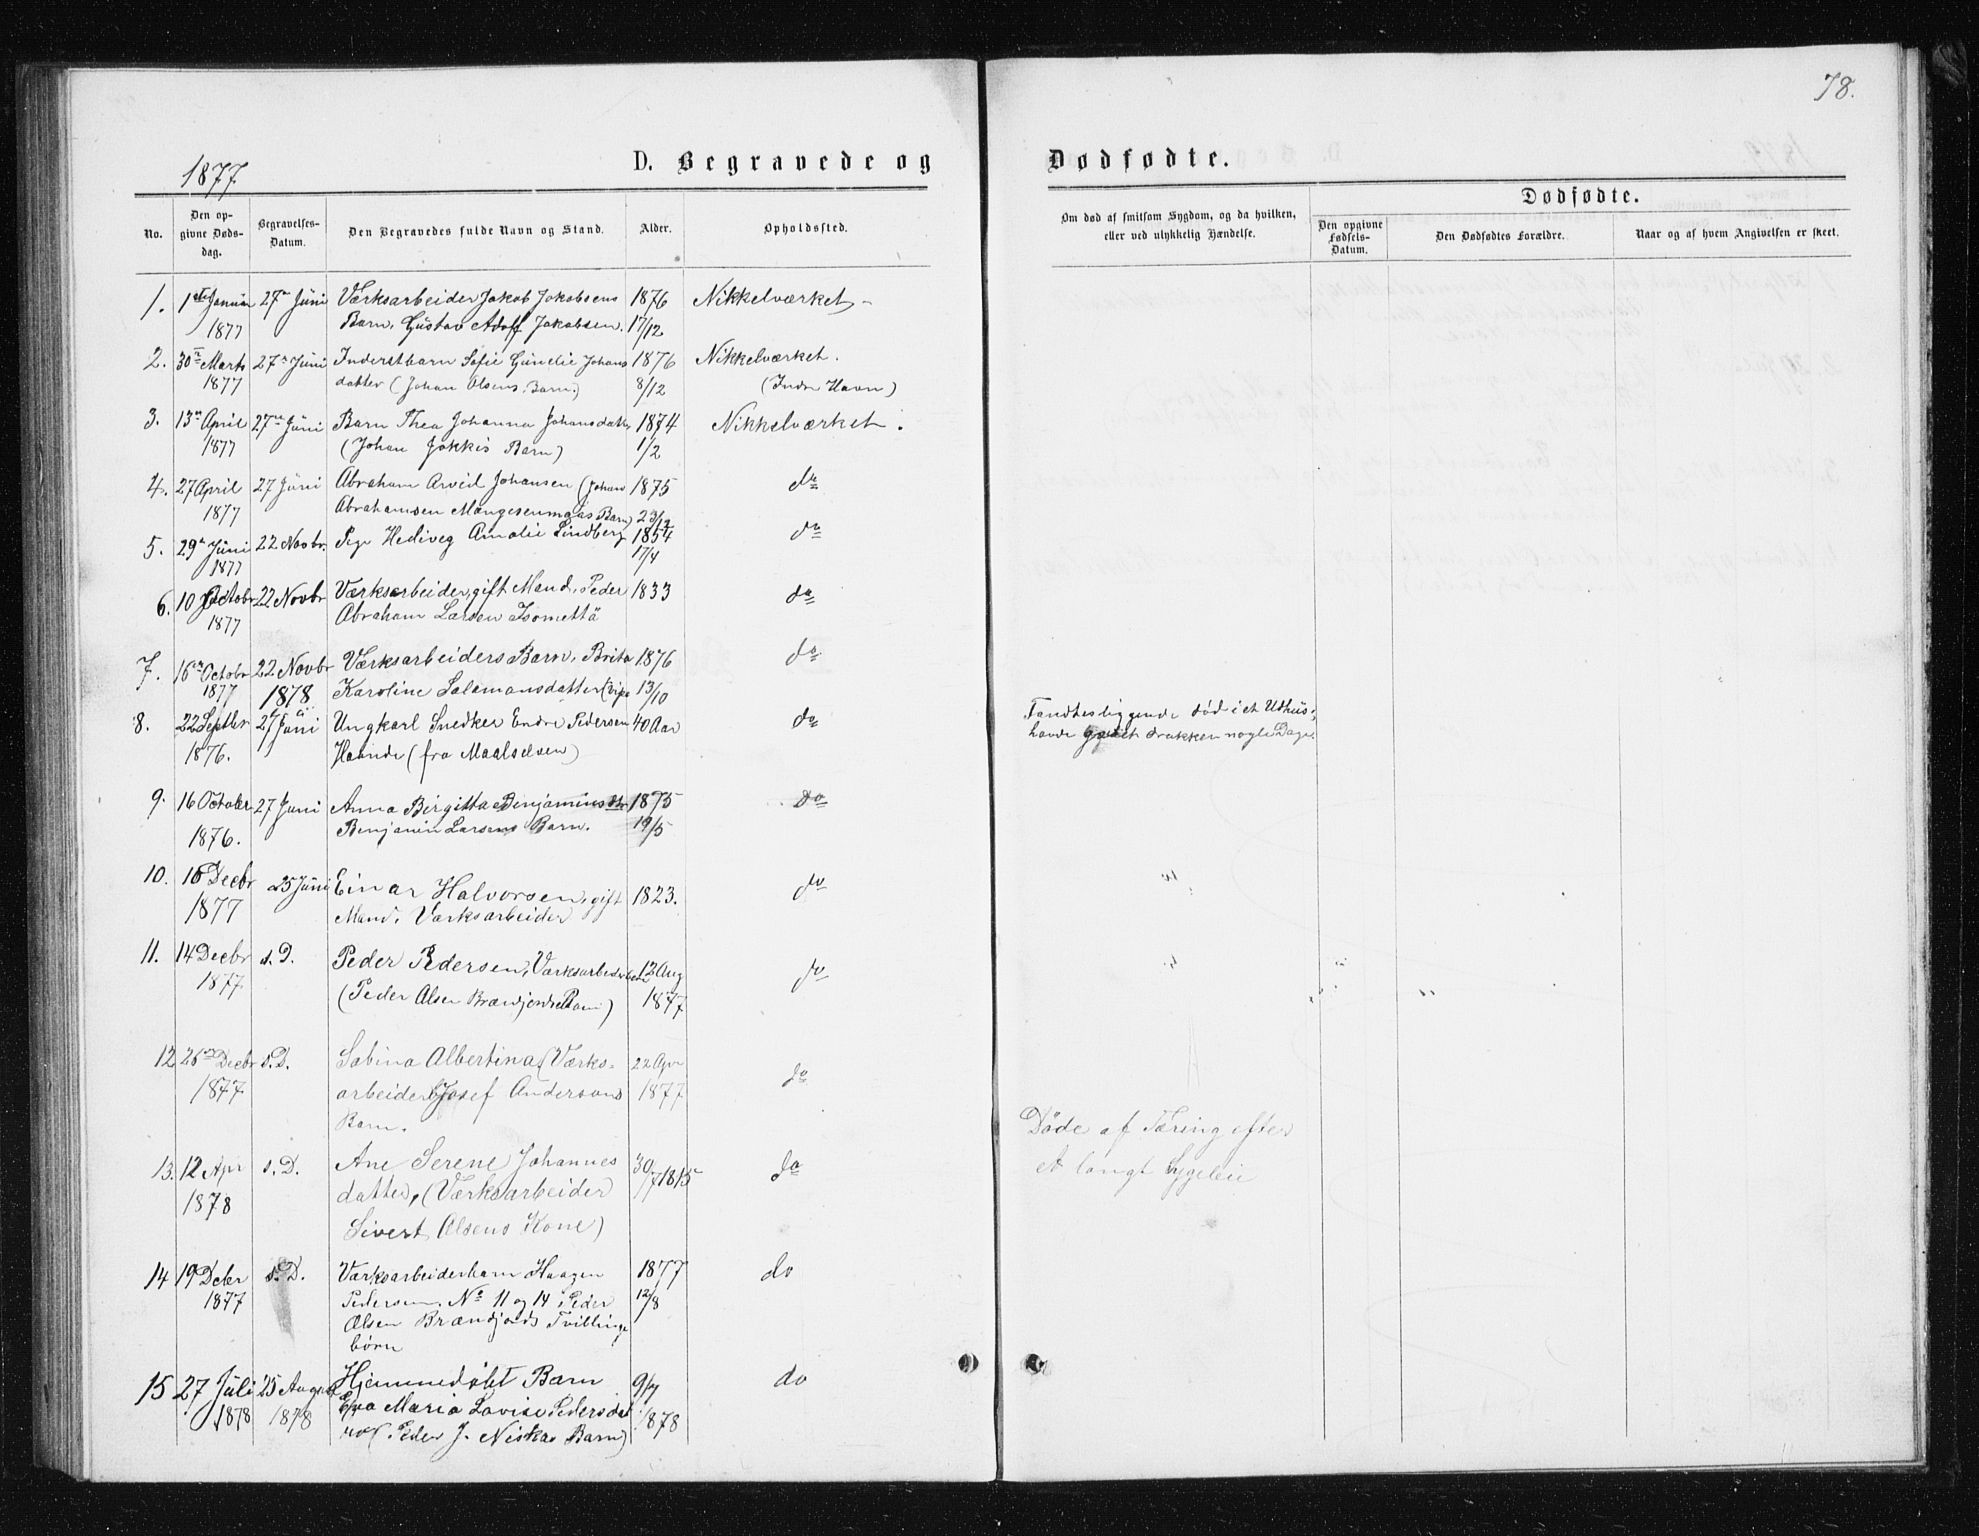 78.
1877
D. Begravede og Dødfødte.
No.
Den opgivne Dødsdag.
Begravelses-Datum.
Den Begravedes fulde Navn og Stand.
Alder.
Opholdssted.
Om død af smitsom Sygdom, og da hvilken, eller ved ulykkelig Hændelse.
Dødfødte.
Den opgivne Fødsels-Datum.
Den Dødfødtes Forældre.
Naar og af hvem Angivelsen er skeet.
1. 1ste Januar 27n Juni Værksarbeider Jakob Jakobsens 1876 Nikkelværket
1877 Barn, Gustav Adolf Jakobsen. 17/12
2. 30te Marts 27n Juni Inderstbarn Sofie Gundie Johans 1876 Nikkelværket.
1877 datter (Johan Olsens Barn) 8/12 (Indre Havn)
3. 13n April 27n Juni Barn Thea Johanna Johansdatter 1874 Nikkelværket.
1877 (Johan Jokkis Barn) 1/2
4. 27 April 27 Juni Abraham Arvid Johansen (Johan 1875 do
1877 Abrahamsen Barn) 23/12
5. 29n Juni 22 Novbr. Pige Hedveg Amalie Lindberg 1854 do
1877 17/4
6. 10 Octobr 22 Novbr Værksarbeider, gift Mand, Peder 1833 do
1877 Abraham Larsen Isomettä
7. 16n Octobr 22 Novbr Værksarbeiders Barn, Brita 1876 do
1877 1878 Karoline Salamonsdatter 13/10
8. 22 Septbr 27 Juni Ungkarl Snedker Endre Pedersen 40 Aar do Fandtes liggende død i et Udhus;
1876. Haande (fra Maalselven) havde gaaet drukken nogle Dage.
9. 16 October 27 Juni Anna Birgitta Benjamins dtr 1875 do
1876. Benjamin Larsens Barn. 19/5
10. 16 Decbr 25 Juni Einar Halvorsen, gift 1823. do
1877 Mand, Værksarbeider
11. 14 Decbr s.D. Peder Pedersen, Værksarbeiderbarn 12 Aug do
1877 (Peder Olsen Barn) 1877
12 26n Decbr s.D. Sabina Albertina (Værks- 22 Apr do
1877 arbeider Josef Andersons 1877
Barn.
13. 12 Apr s.D. Ane Serene Johannes 30/7 1815 do Døde af Tæring efter
1878 datter, (Værksarbeider et langt Sygeleie
Sivert Olsens Kone)
14 19 Decbr s.D. Værksarbeiderbarn Haagen 1877 do
1877 Pedersen. No 11 og 14, Peder 12/8
Olsen Brændjords Tvillinge
børn
15 27 Juli 25 August Hjemmedøbt Barn 9/7 do
1878 1878 Eva Maria Lovise Pedersdat
(Peder J. Niskas Barn) 1878